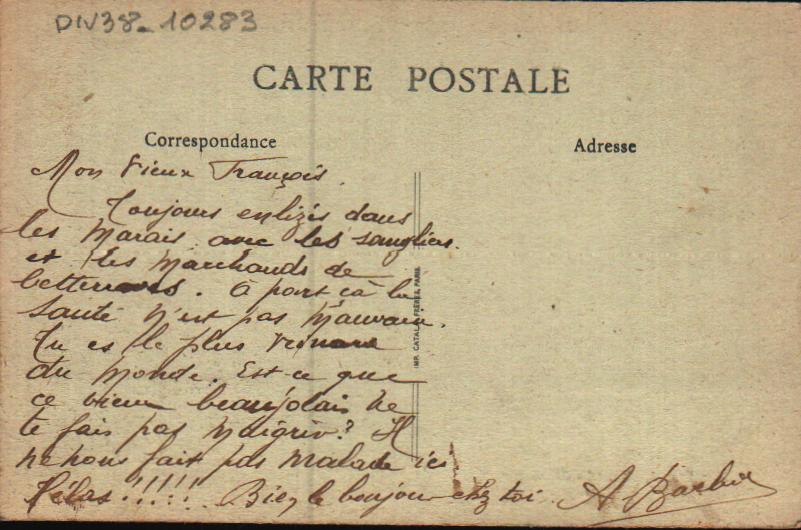 DIV38-10283
CARTE POSTALE
Correspondance
Adresse
Mon Vieux François.
Toujours enlizés dans
les Marais avec les sangliers.
et les Marchands de
betteraves. à part çà la
Santé n'est pas Mauvaise.
Tu es le plus veinard
du Monde. Est ce que
ce vieux beaujolais ne
te fais pas Maigrir? Il
ne nous fait pas Malade ici
Hélas!!!!! Bien le bonjour chez toi. A Barbu
IMP. CATALA FRÈRES, PARIS